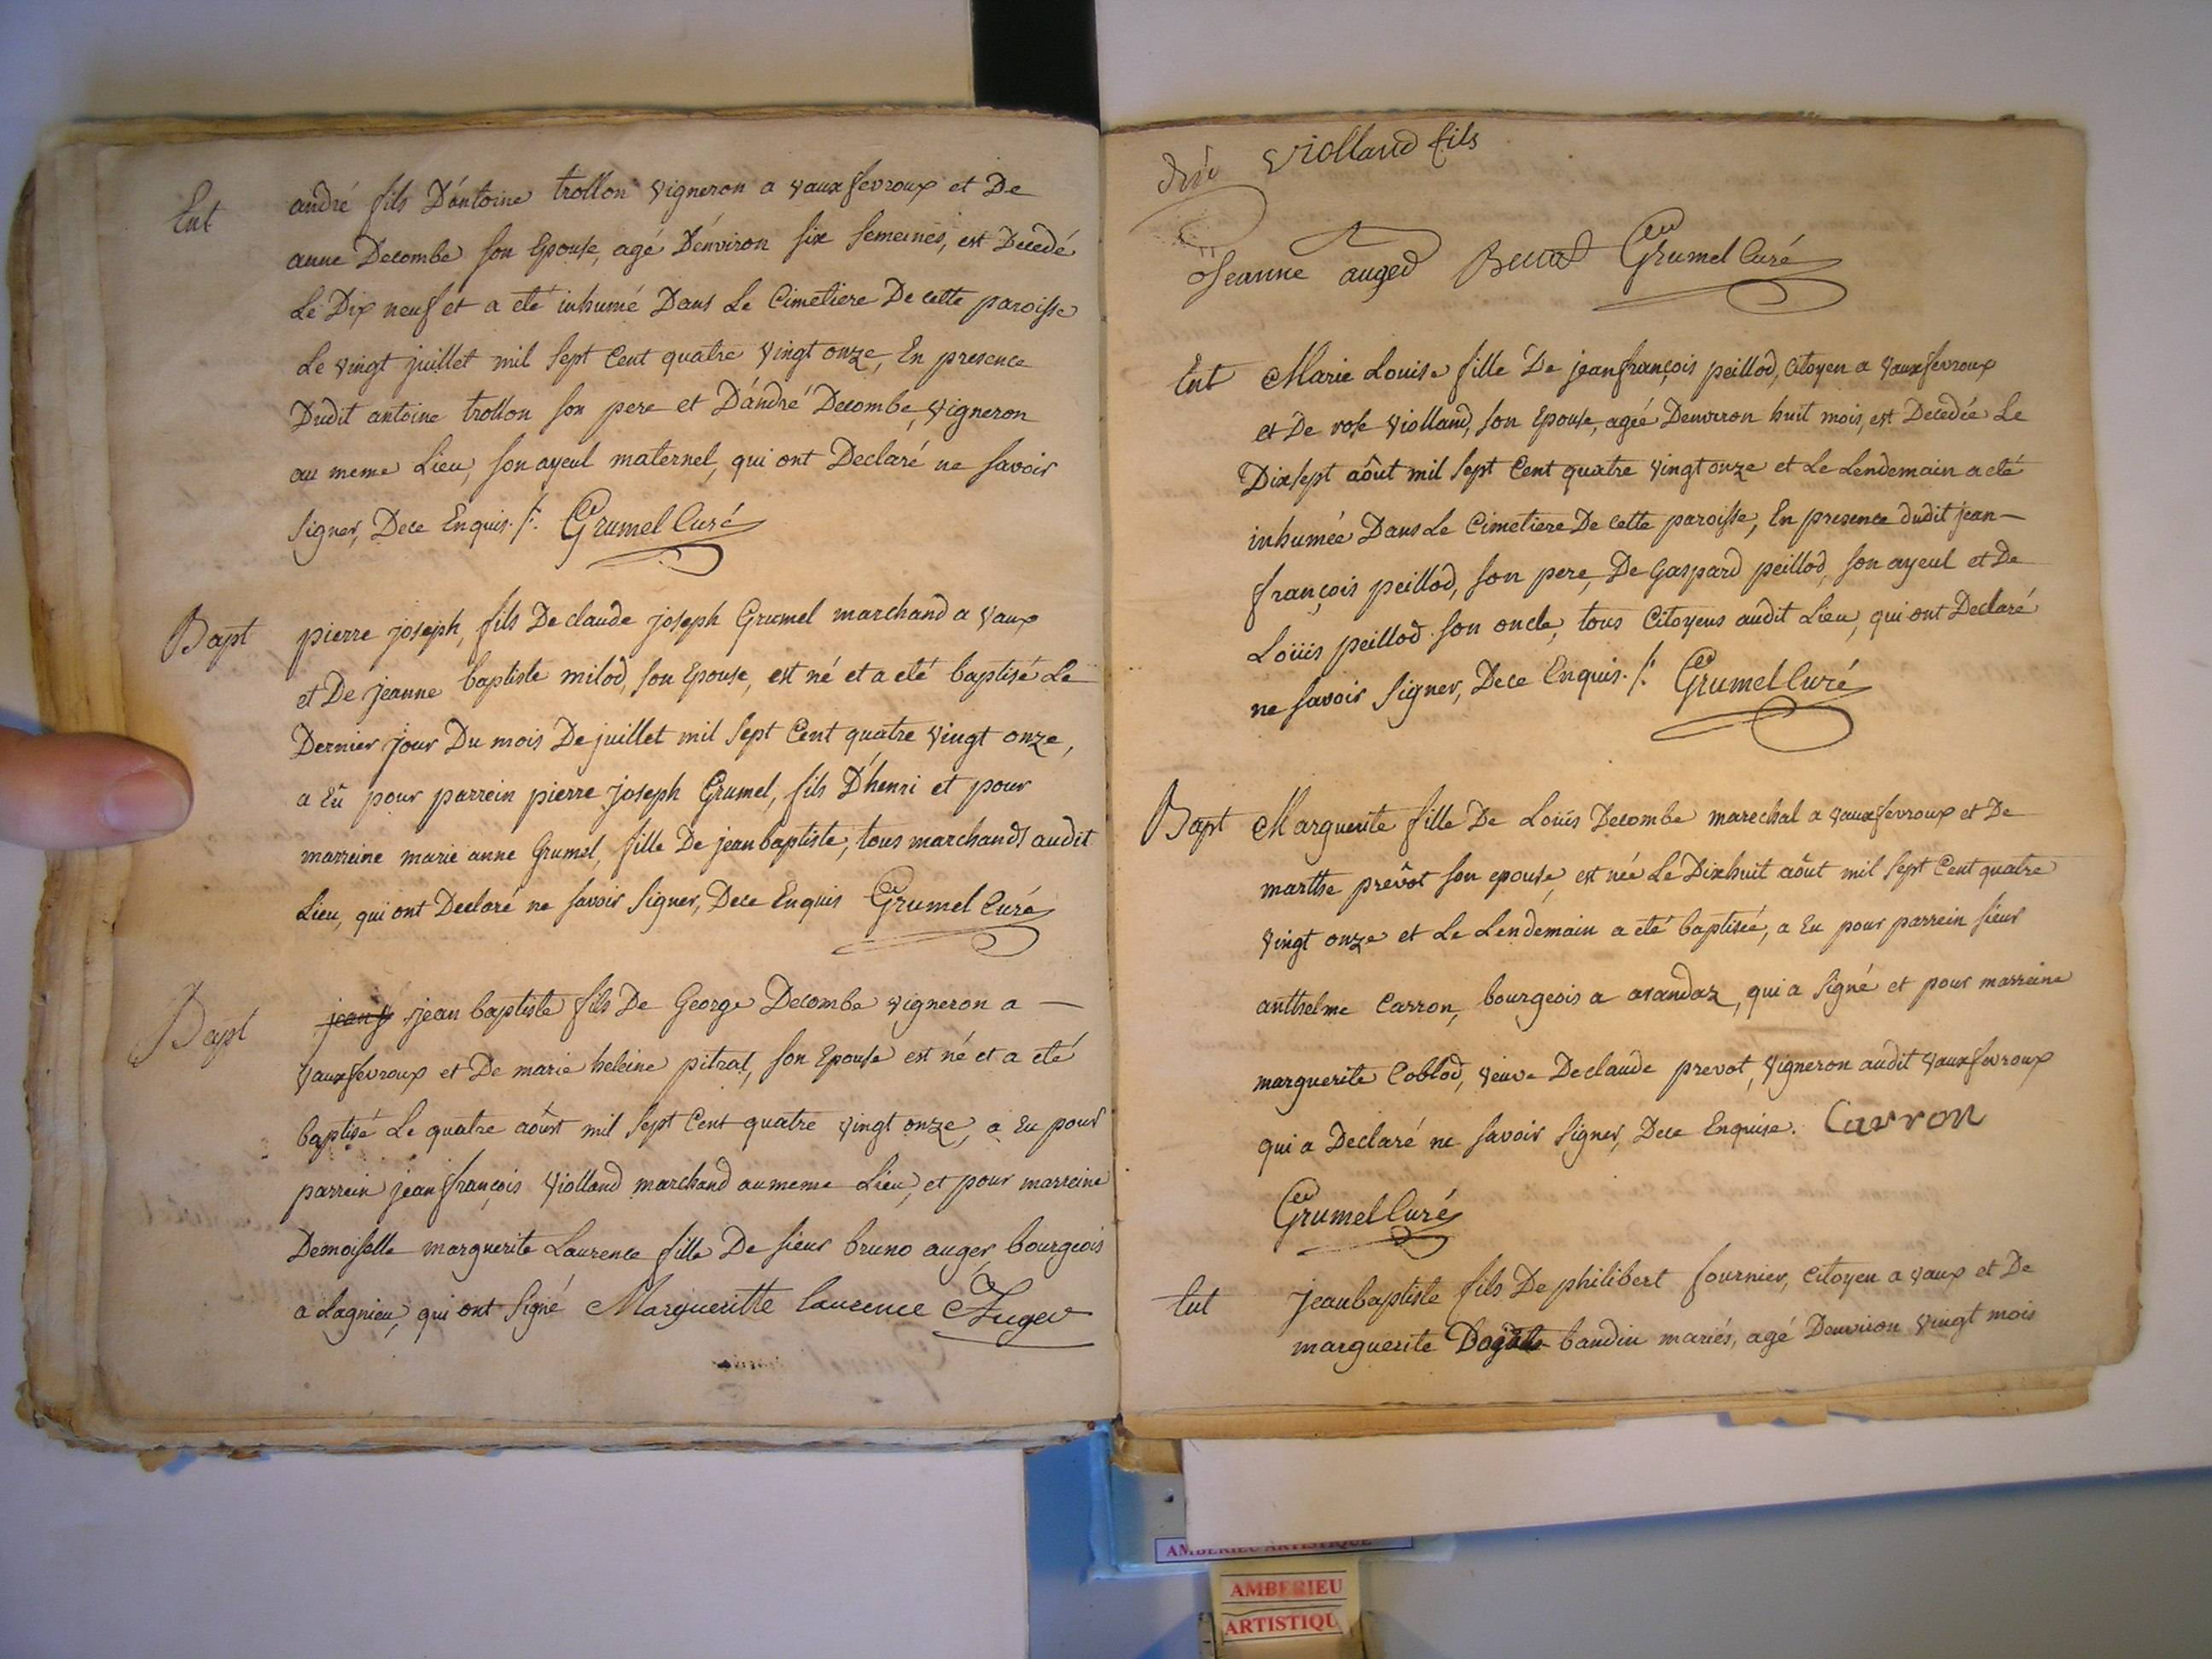 Ent
andré fils D'antoine trollon vigneron a vauxfevroux et De
anne Decombe son Epouse, agé D'environ six semeines, est Decedé
Le Dix neuf et a eté inhumé Dans Le Cimetiere De cette paroisse
Le vingt juillet mil sept Cent quatre vingt onze, En presence
Dudit antoine trollon son pere et D'andré Decombe, vigneron
au meme Lieu, son ayeul maternel, qui ont Declaré ne savoir
signer, Dece Enquis ./. Grumel Curé
Bapt
pierre joseph, fils De claude joseph Grumel marchand a vaux
et De jeanne baptiste milod, son Epouse, est né et a eté baptisé Le
Dernier jour Du mois De juillet mil sept Cent quatre vingt onze,
a Eu pour parrein pierre joseph Grumel, fils D'henri et pour
marreine marie anne Grumel, fille De jean baptiste, tous marchands audit
Lieu, qui ont Declaré ne savoir signer, Dece Enquis Grumel Curé
Bapt
jean f jean baptiste fils De George Decombe vigneron a —
vauxfevroux et De marie heleine pitrat, son Epouse est né et a eté
baptisé Le quatre aôust mil sept Cent quatre vingt onze, a Eu pour
parrein jean françois violland marchand au meme Lieu, et pour marreine
Demoiselle marguerite Laurence fille De sieur bruno auger, bourgeois
a Lagnieu, qui ont signé Margueritte laurence Auger
violland fils
Jeanne auger Grumel Curé
Ent
Marie Louise fille De jean françois peillod, citoyen a vauxfevroux
et De rose violland, son Epouse, agée Denviron huit mois, est Decedée Le
Dixsept aôut mil sept Cent quatre vingt onze et Le Lendemain a eté
inhumée Dans Le Cimetiere De cette paroisse, En presence dudit jean —
françois peillod, son pere, De Gaspard peillod, son ayeul et De
Loüis peillod son oncle, tous Citoyens audit Lieu, qui ont Declaré
ne savoir signer, Dece Enquis ./. Grumel Curé
Bapt
Marguerite fille De Loüis Decombe marechal a vauxfevroux et De
marthe prevôt son epouse, est née Le Dixhuit aôut mil sept Cent quatre
vingt onze et Le Lendemain a eté baptisée, a Eu pour parrein sieur
anthelme Carron, bourgeois a arandaz, qui a signé et pour marreine
marguerite Coblod, veuve De claude prevot, vigneron audit vauxfevroux
qui a Declaré ne savoir signer, Dece Enquise. Carron
Grumel Curé
Ent
jean baptiste fils De philibert fournier, citoyen a vaux et De
marguerite baudin mariés, agé Denviron vingt mois
AMBERIEU ARTISTIQUE
AMBERIEU
ARTISTIQU